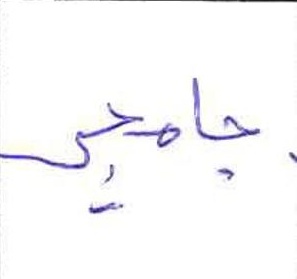 جامجي